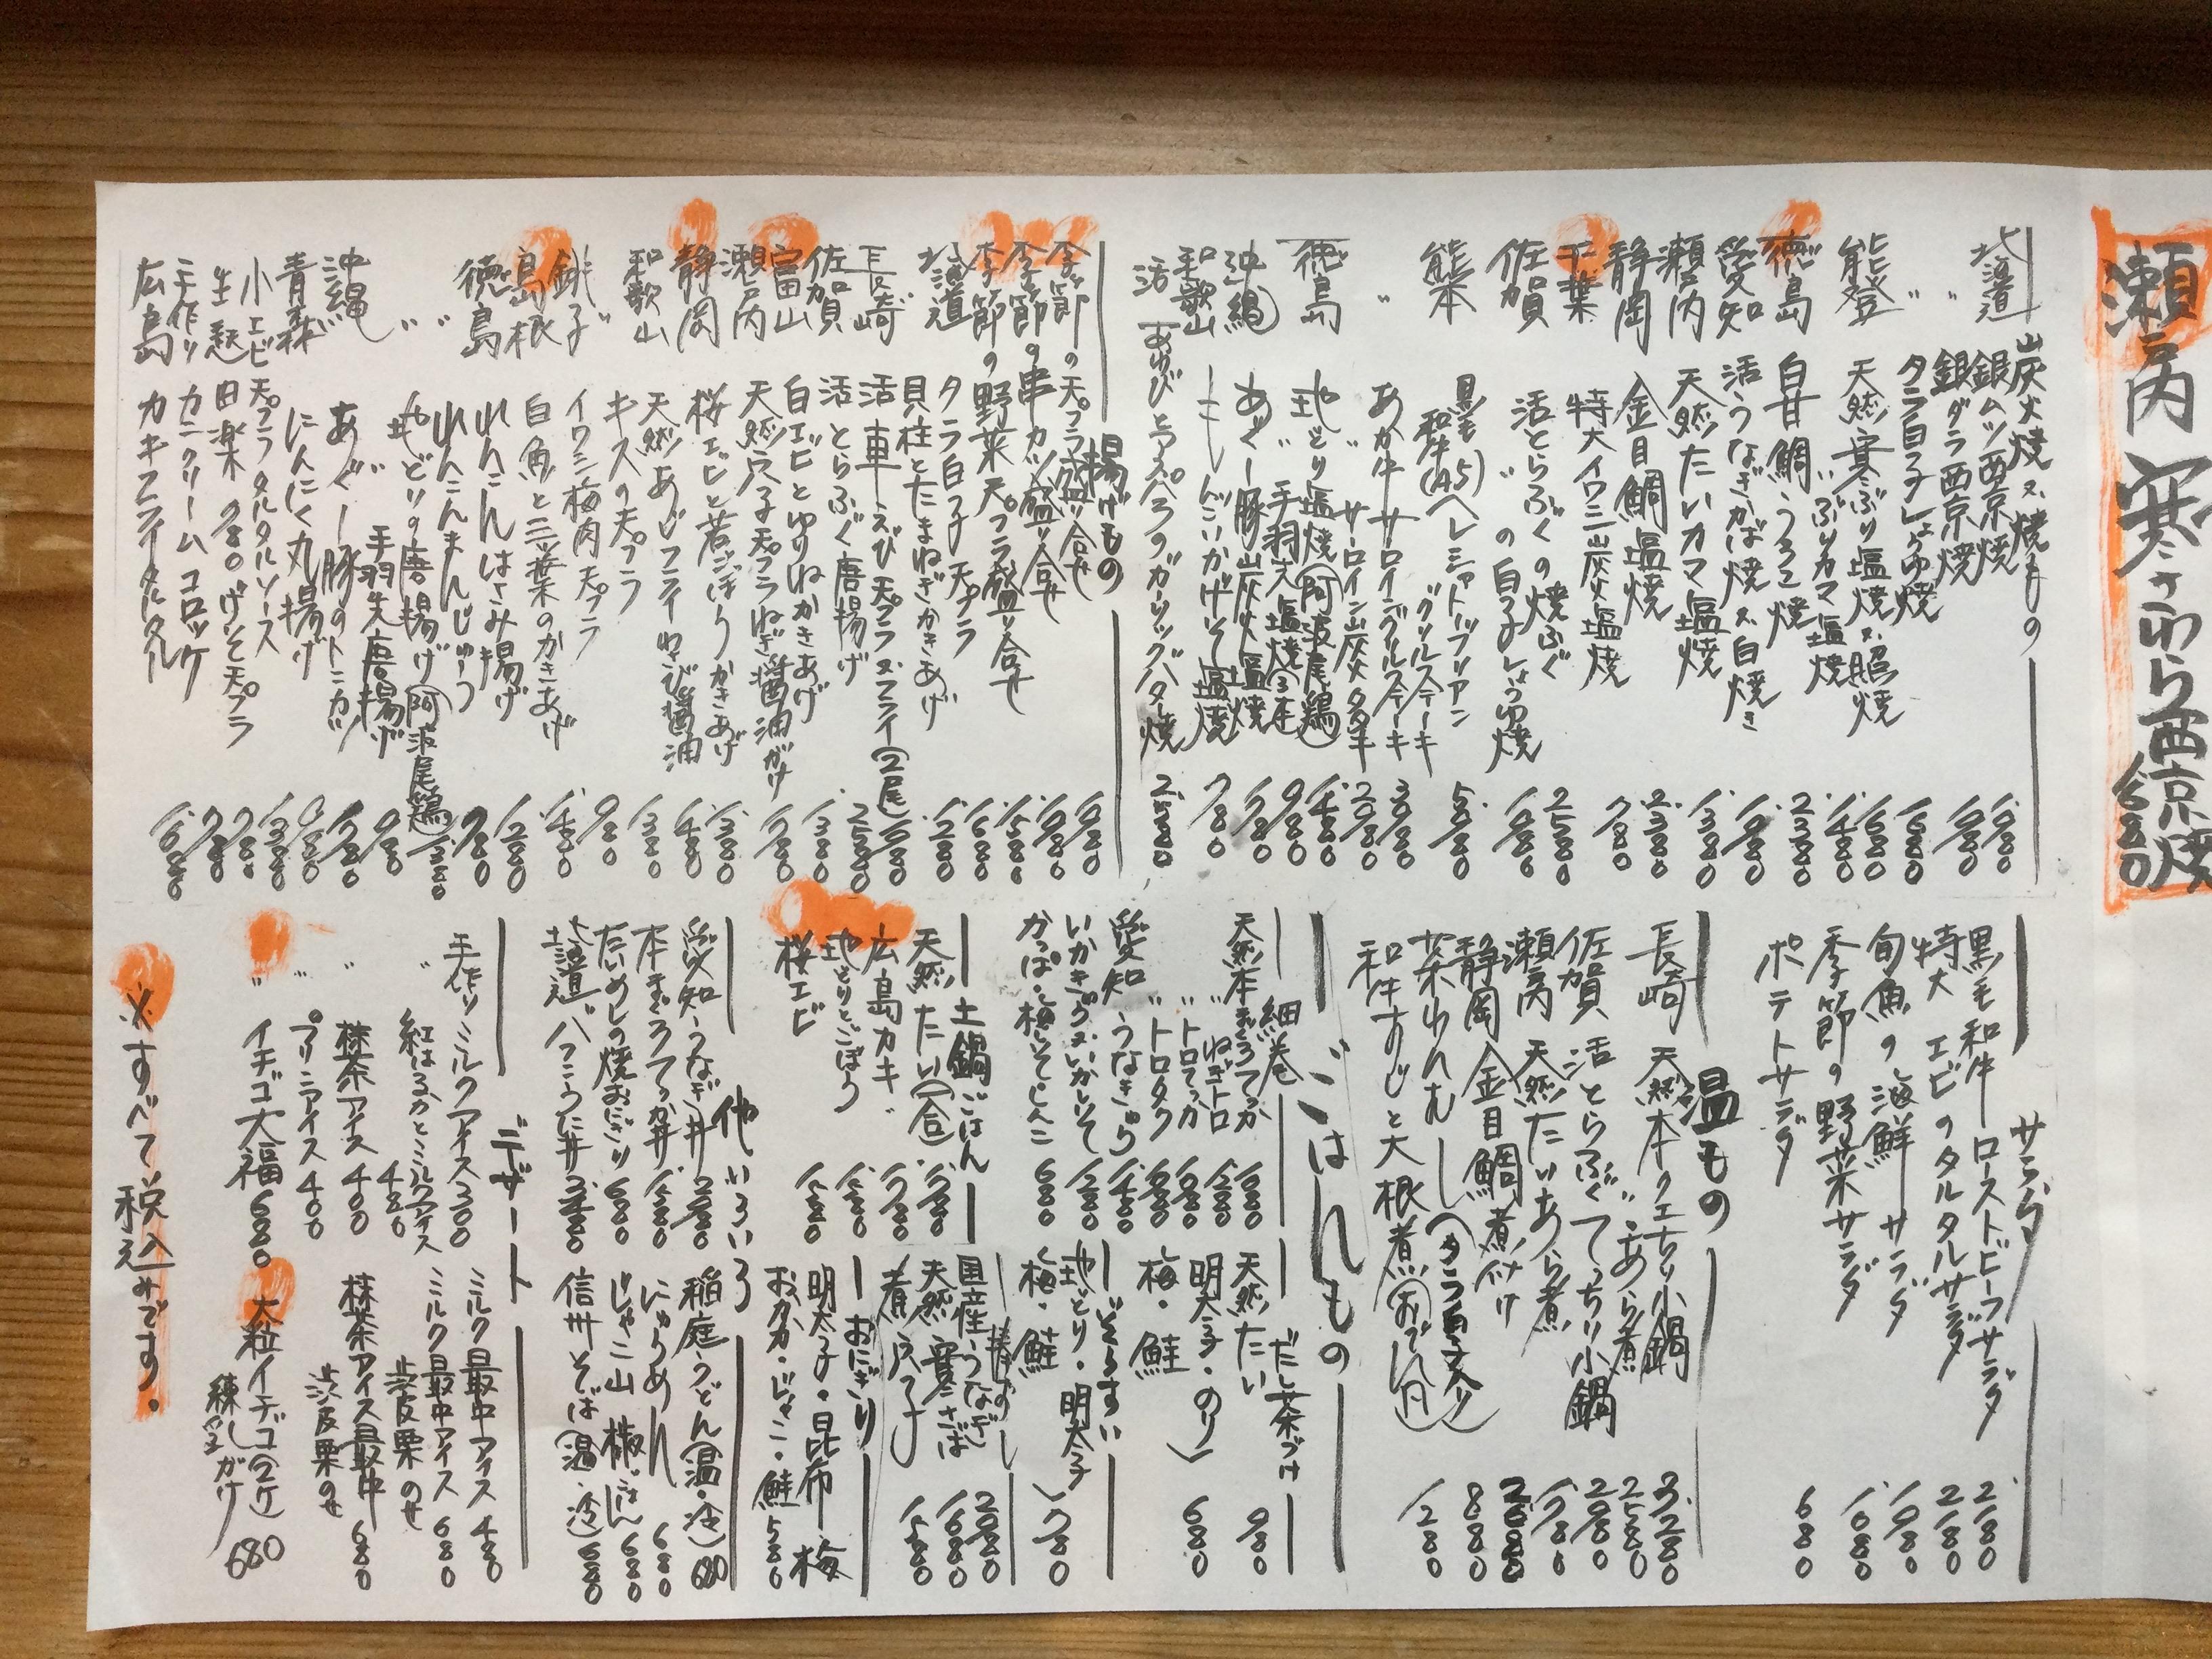 瀬戸内 寒さわら西京焼 1,680
炭火焼又、焼もの
北海道 銀ムツ西京焼 1,980
〃 銀ダラ西京焼 1,980
〃 タラ白子しょうゆ焼 1,680
能登 天然寒ぶり塩焼又、照焼 1,680
〃 ぶりカマ塩焼 1,480
徳島 白甘鯛うろこ焼 2,380
愛知 活うなぎかば焼又、白焼き
瀬戸内 天然たいカマ塩焼 1,380
静岡 金目鯛塩焼 2,380
千葉 特大イワシ炭火塩焼 780
佐賀 活とらふぐの焼ふぐ 2,580
〃 の白子しょうゆ焼 1,980
熊本 黒毛和牛(A5)ヘレシャトーブリアン
グリルステーキ
あか牛サーロイングリルステーキ
〃 サーロイン炭火タタキ
徳島 地どり塩焼(阿波尾鶏) 1,480
〃 手羽先塩焼(3本) 980
沖縄 あぐー豚炭火塩焼 1,780
和歌山 しんこいかげそ塩焼 780
活あわびとアスパラのガーリックバター焼 2,580
揚げもの
季節の天プラ盛り合せ 1,980
季節の串カツ盛り合せ 1,980
季節の野菜天プラ盛り合せ 1,580
北海道 タラ白子天プラ 1,680
〃 貝柱とたまねぎかきあげ 1,280
長崎 活車えび天プラ又、フライ(2尾) 1,980
佐賀 活とらふぐ唐揚げ 2,580
富山 白エビとゆりねかきあげ 1,380
瀬戸内 天然穴子天プラねぎ醤油がけ 1,780
静岡 桜エビと若ごぼうかきあげ 1,380
和歌山 天然あじフライわさび醤油 1,480
〃 キスの天プラ 1,380
銚子 イワシ梅肉天プラ 980
島根 白魚と三ッ葉のかきあげ 1,480
徳島 れんこんはさみ揚げ 1,280
〃 れんこんまんじゅう 980
〃 地どりの唐揚げ(阿波尾鶏) 1,380
〃 手羽先唐揚げ 980
沖縄 あぐー豚のトンカツ 1,780
青森 にんにく丸揚げ
小エビ天プラタルタルソース 1,380
生麩田楽 780 げそ天プラ 780
手作りカニクリームコロッケ 1,780
広島 カキフライタルタル 1,680
サラダ
黒毛和牛ローストビーフサラダ 2,180
特大エビのタルタルサラダ 2,180
旬魚の海鮮サラダ 1,980
季節の野菜サラダ 1,680
ポテトサラダ 680
温もの
長崎 天然本クエちり小鍋 3,280
〃 あら煮 2,580
佐賀 活とらふぐてっちり小鍋 2,980
瀬戸内 天然たいあら煮 1,780
静岡 金目鯛煮付け
茶わんむし(タラ白子入り) 880
和牛すじと大根煮(おでん風) 1,280
ごはんもの
細巻
天然本まぐろてっか 1,680
〃 ねぎトロ 1,280
〃 トロてっか 1,680
〃 トロタク 1,680
愛知 うなきゅう 1,480
いかきゅう又、いかしそ 1,280
かっぱ・梅しそしんこ 680
だし茶づけ
天然たい 980
明太子・のり
梅・鮭 680
ぞうすい
地どり・明太子
梅・鮭 780
土鍋ごはん
天然たい(一合) 1,780
広島カキ 1,780
地とりとごぼう 1,580
桜エビ 1,580
棒おすし
国産うなぎ 2,980
天然寒さば 1,680
煮穴子 1,580
おにぎり
明太子・昆布・梅
おかか・じゃこ・鮭 580
他いろいろ
愛知 うなぎ丼
本まぐろてっか丼
たいめしの焼おにぎり 680
北海道 バフンうに丼
稲庭うどん(温・冷) 680
にゅうめん 680
じゃこ山椒ごはん 680
信州そば(温・冷) 680
デザート
手作りミルクアイス 300
〃 紅はるかとミルクアイス 480
〃 抹茶アイス 400
〃 プリンアイス 400
〃 イチゴ大福 680
ミルク最中アイス 480
ミルク最中アイス渋皮栗のせ 680
抹茶アイス最中渋皮栗のせ 680
大粒イチゴ(2ケ)練乳がけ 680
※すべて税込みです。